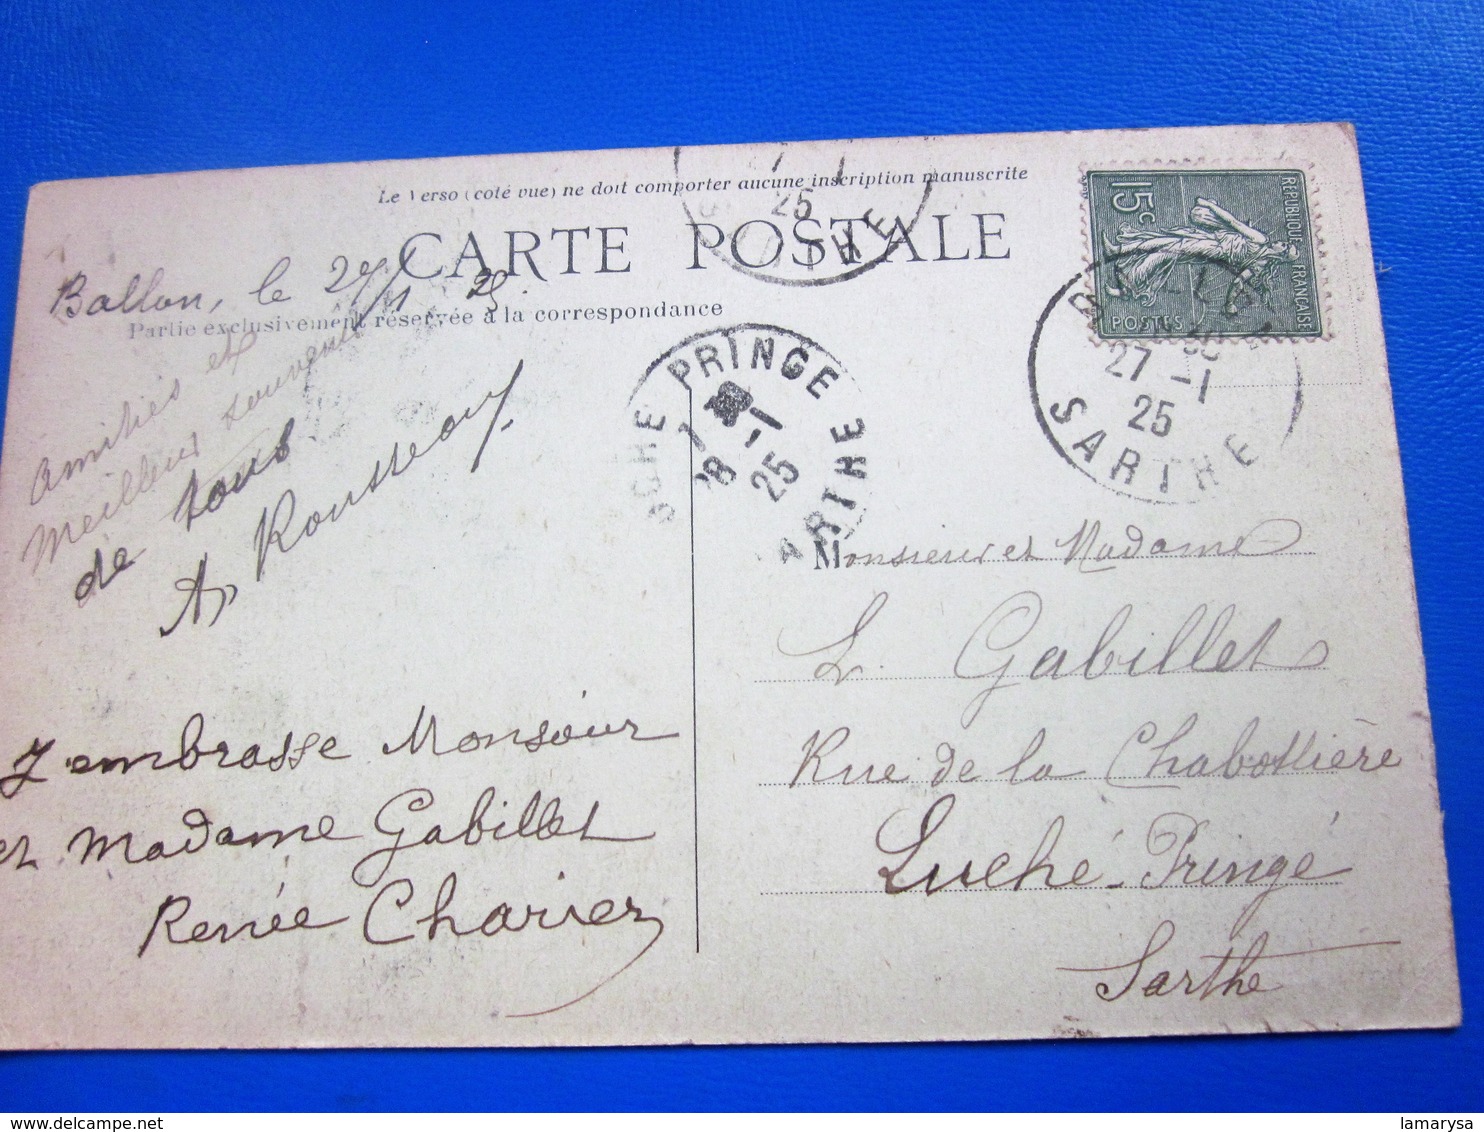 Le Verso (côté vue) ne doit comporter aucune inscription manuscrite
CARTE POSTALE
Partie exclusivement réservée à la correspondance
Ballon, le 27/1 25.
Amitiés et
Meilleurs souvenirs
de tous
A Rousseau
J embrasse Monsieur
et Madame Gabillet
Renée Charier
25
RTHE
REPUBLIQUE FRANÇAISE
15c
POSTES
27 -1
25
SARTHE
CHE PRINGE
8 -1
25
ARTHE
Monsieur et Madame
L. Gabillet
Rue de la Chabottière
Luché-Pringé
Sarthe
lamarysa